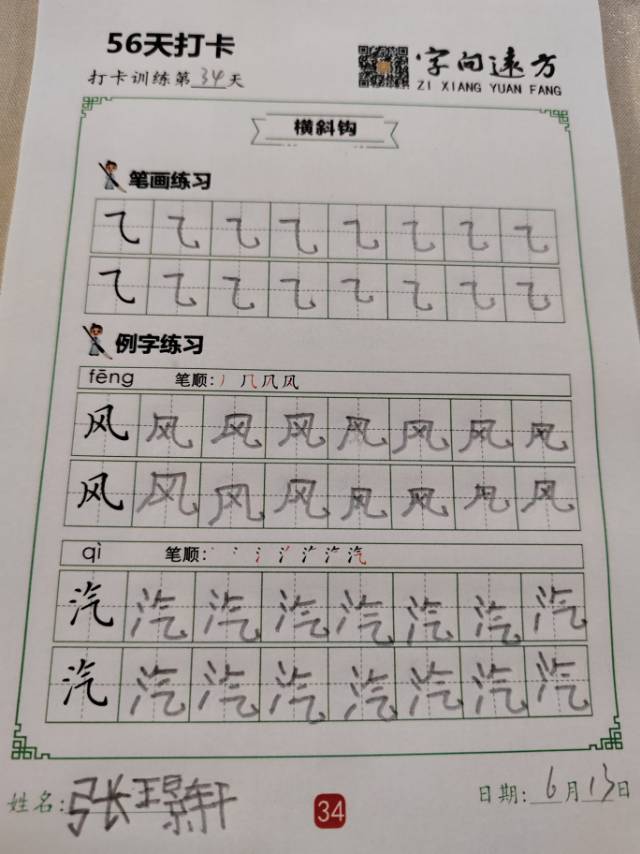 56天打卡
打卡训练第34天
字向远方
ZI XIANG YUAN FANG
横斜钩
笔画练习
⺄ ⺄ ⺄ ⺄ ⺄ ⺄ ⺄ ⺄
⺄ ⺄ ⺄ ⺄ ⺄ ⺄ ⺄ ⺄
例字练习
fēng 笔顺:
风 风 风 风 风 风 风 风
风 风 风 风 风 风 风 风
qì 笔顺:
汽 汽 汽 汽 汽 汽 汽 汽
汽 汽 汽 汽 汽 汽 汽 汽
姓名: 张璟轩
34
日期: 6月13日